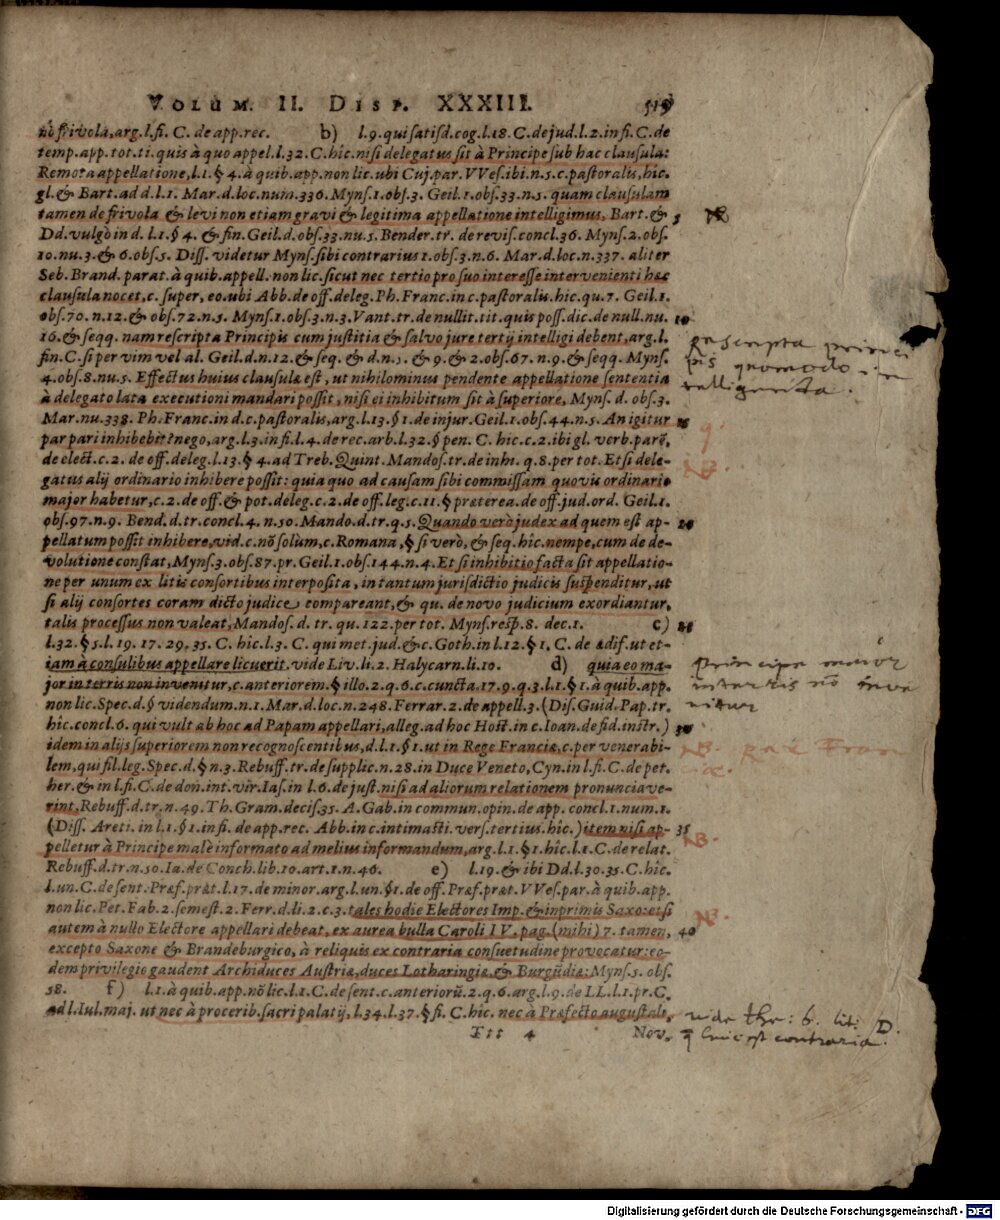 VOLUM. II. DISP. XXXIII. 519
nō frivola, arg. l. fi. C. de app. rec. b) l. 9. qui satisd. cog. l. 18. C. de jud. l. 2. in fi. C. de
temp. app. tot. ti. quis à quo appel. l. 32. C. hîc. nisi delegatus sit à Principe sub hac clausula:
Remota appellatione, l. 1. § 4. à quib. app. non lic. ubi Cuj. par. VVes. ibi. n. 5. c. pastoralis, hic.
gl. & Bart. ad d. l. 1. Mar. d. loc. num. 336. Myns. 1. obs. 3. Geil. 1. obs. 33. n. 5. quam clausulam
tamen de frivola & levi non etiam gravi & legitima appellatione intelligimus, Bart. & 5
Dd. vulgò in d. l. 1. § 4. & fin. Geil. d. obs. 33. nu. 5. Bender. tr. de revis. concl. 36. Myns. 2. obs.
10. nu. 3. & 6. obs. 5. Diss. videtur Myns. sibi contrarius 1. obs. 3. n. 6. Mar. d. loc. n. 337. aliter
Seb. Brand. parat. à quib. appell. non lic. sicut nec tertio pro suo interesse intervenienti hæc
clausula nocet, c. super, eo. ubi Abb. de off. deleg. Ph. Franc. in c. pastoralis. hîc. qu. 7. Geil. 1.
obs. 70. n. 12. & obs. 72. n. 5. Myns. 1. obs. 3. n. 3. Vant. tr. de nullit. tit. quis poss. dic. de null. nu. 10
16. & seqq. nam rescripta Principis cum justitia & salvo jure tertij intelligi debent, arg. l.
fin. C. si per vim vel al. Geil. d. n. 12. & seq. & d. n. 5. & 9. & 2. obs. 67. n. 9. & seqq. Myns.
4. obs. 8. nu. 5. Effectus huius clausulæ est, ut nihilominus pendente appellatione sententia
à delegato lata executioni mandari possit, nisi ei inhibitum sit à superiore, Myns. d. obs. 3.
Mar. nu. 338. Ph. Franc. in d. c. pastoralis, arg. l. 13. § 1. de injur. Geil. 1. obs. 44. n. 5. An igitur 15
par pari inhibebit? nego, arg. l. 3. in fi. l. 4. de rec. arb. l. 32. § pen. C. hic. c. 2. ibi gl. verb. parē,
de elect. c. 2. de off. deleg. l. 13. § 4. ad Treb. Quint. Mandos. tr. de inhi. q. 8. per tot. Etsi dele-
gatus alij ordinario inhibere possit: quia quo ad causam sibi commissam quovis ordinario
major habetur, c. 2. de off. & pot. deleg. c. 2. de off. leg. c. 11. § præterea. de off. jud. ord. Geil. 1.
obs. 97. n. 9. Bend. d. tr. concl. 4. n. 50. Mando. d. tr. q. 5. Quando verò judex ad quem est ap- 20
pellatum possit inhibere, vid. c. nō solùm, c. Romana, § si verò, & seq. hîc. nempe, cum de de-
volutione constat, Myns. 3. obs. 87. pr. Geil. 1. obs. 144. n. 4. Et si inhibitio facta sit appellatio-
ne per unum ex litis consortibus interposita, in tantum jurisdictio judicis suspenditur, ut
si alij consortes coram dicto judice compareant, & qu. de novo judicium exordiantur,
talis processus non valeat, Mandos. d. tr. qu. 122. per tot. Myns. resp. 8. dec. 1. c) 25
l. 32. § 5. l. 19. 17. 29, 35. C. hîc. l. 3. C. qui met. jud. & c. Goth. in l. 12. § 1. C. de ædif. ut et-
iam à consulibus appellare licuerit. vide Liv. li. 2. Halycarn. li. 10. d) quia eo ma-
jor in terris non invenitur, c. anteriorem. § illo. 2. q. 6. c. cuncta. 17. 9. q. 3. l. 1. § 1. à quib. app.
non lic. Spec. d. § videndum. n. 1. Mar. d. loc. n. 248. Ferrar. 2. de appell. 3. (Dis. Guid. Pap. tr.
hîc. concl. 6. qui vult ab hoc ad Papam appellari, alleg. ad hoc Host. in c. Ioan. de fid. instr.) 30
idem in alijs superiorem non recognoscentibus, d. l. 1. § 1. ut in Rege Franciæ, c. per venerabi-
lem, qui fil. leg. Spec. d. § n. 3. Rebuff. tr. de supplic. n. 28. in Duce Veneto, Cyn. in l. fi. C. de pet.
her. & in l. fi. C. de don. int. vir. Ias. in l. 6. de just. nisi ad aliorum relationem pronunciave-
rint, Rebuff. d. tr. n. 49. Th. Gram. decis. 35. A. Gab. in commun. opin. de app. concl. 1. num. 1.
(Diss. Areti. in l. 1. § 1. in fi. de app. rec. Abb. in c. intimasti. vers. tertius. hîc.) item nisi ap- 35
pelletur à Principe malè informato ad melius informandum, arg. l. 1. § 1. hîc. l. 1. C. de relat.
Rebuff. d. tr. n. 50. Ia. de Conch. lib. 10. art. 1. n. 46. e) l. 19. & ibi Dd. l. 30. 35. C. hîc.
l. un. C. de sent. Præf. præt. l. 17. de minor. arg. l. un. § 1. de off. Præf. præt. VVes. par. à quib. app.
non lic. Pet. Fab. 2. semest. 2. Ferr. d. li. 2. c. 3. tales hodie Electores Imp. & inprimis Saxo: etsi
autem à nullo Electore appellari debeat, ex aurea bulla Caroli IV. pag. (mihi) 7. tamen, 40
excepto Saxone & Brandeburgico, à reliquis ex contraria consuetudine provocatur: eo-
dem privilegio gaudent Archiduces Austriæ, duces Lotharingiæ, & Burgūdiæ: Myns. 5. obs.
58. f) l. 1. à quib. app. nō lic. l. 1. C. de sent. c. anteriorū. 2. q. 6. arg. l. 9. de LL. l. 1. pr. C.
ad l. Iul. maj. ut nec à procerib. sacri palatij, l. 34. l. 37. § fi. C. hîc. nec à Præfecto augustali,
Ttt 4 Nov.
NB
Rescripta princi
pis quomodo in
telligenda.
q.
NB.
Principe maior
in terris nō inve
nitur
NB. Rex Fran
ciæ.
NB.
NB.
vide the: 6. lit: D.
q̄ huic est contraria.
Digitalisierung gefördert durch die Deutsche Forschungsgemeinschaft - DFG